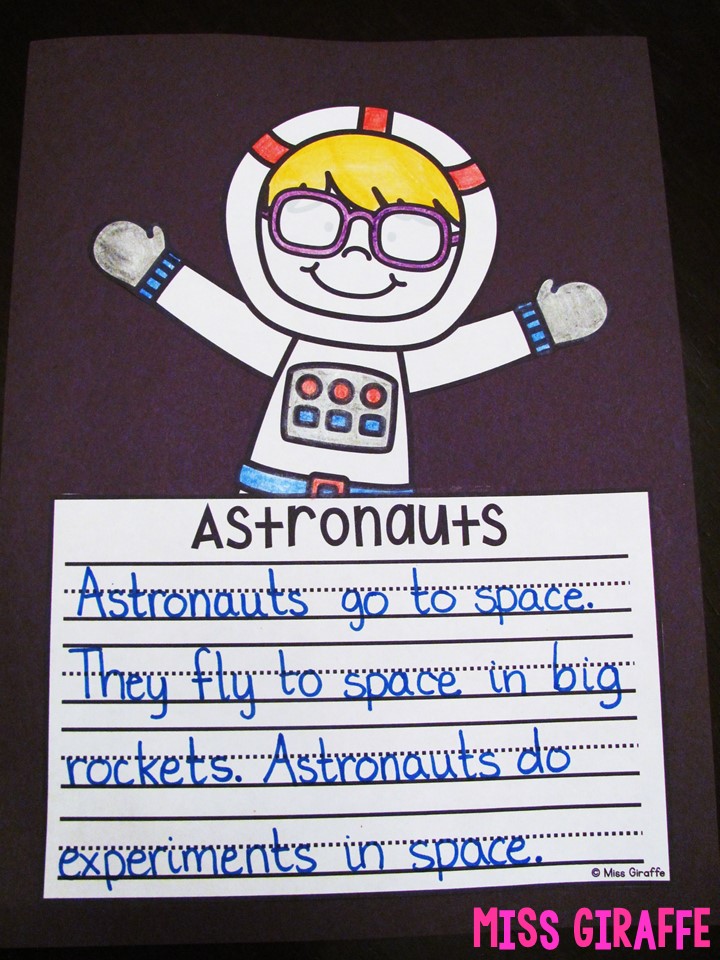 Astronauts
Astronauts go to space.
They fly to space in big
rockets. Astronauts do
experiments in space.
© Miss Giraffe
MISS GIRAFFE